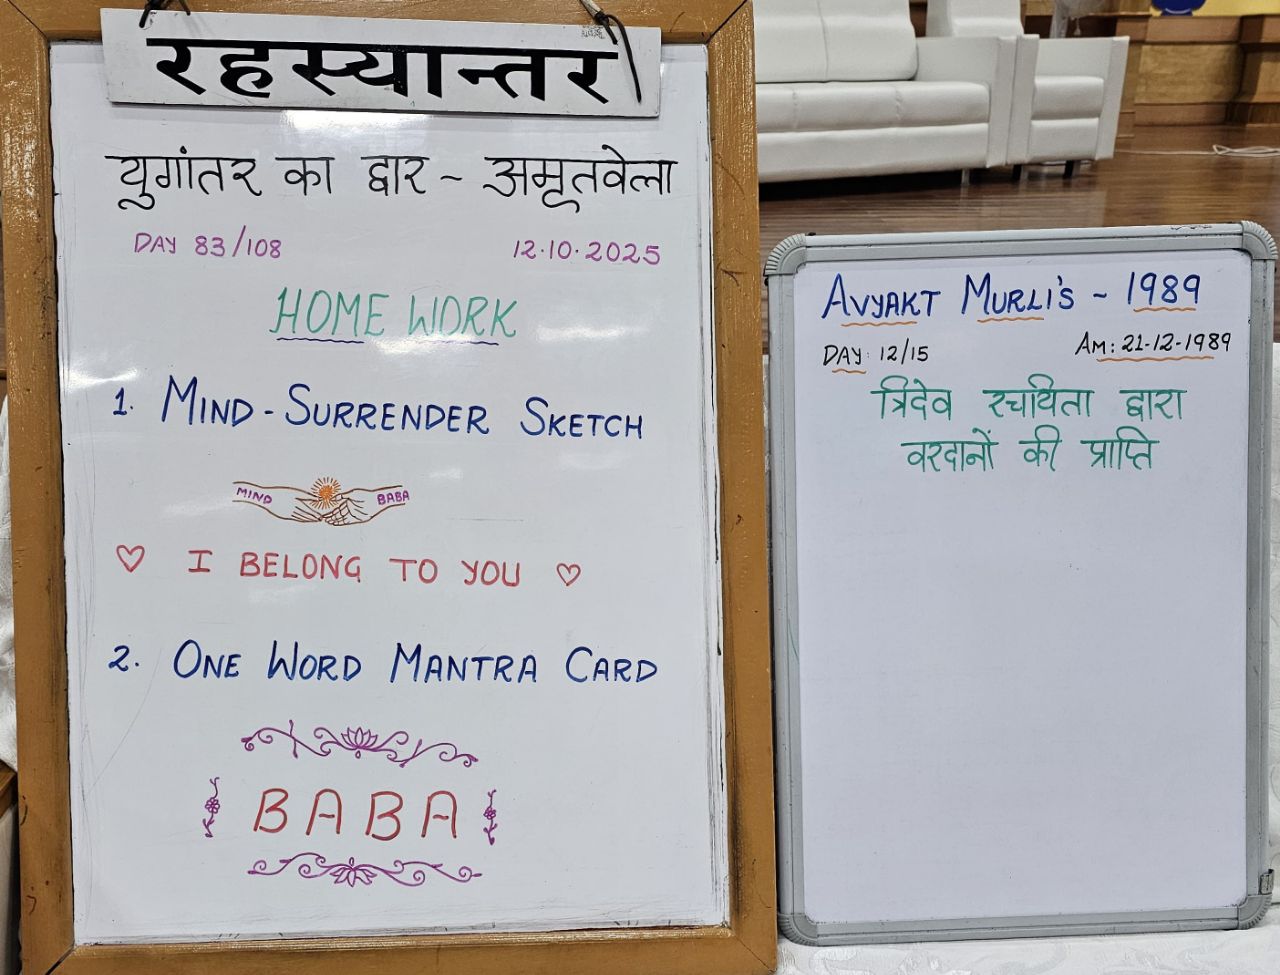 रहस्यान्तर
युगांतर का द्वार - अमृतवेला
DAY 83/108 12.10.2025
HOME WORK
1. MIND - SURRENDER SKETCH
MIND BABA
♡ I BELONG TO YOU ♡
2. ONE WORD MANTRA CARD
BABA
AVYAKT MURLI'S - 1989
DAY: 12/15 AM: 21-12-1989
त्रिदेव रचयिता द्वारा
वरदानों की प्राप्ति